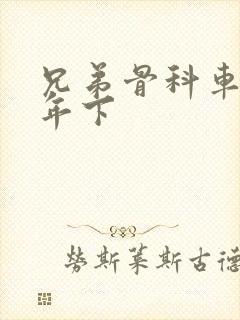 兄弟骨科車
年下
勞斯萊斯古德